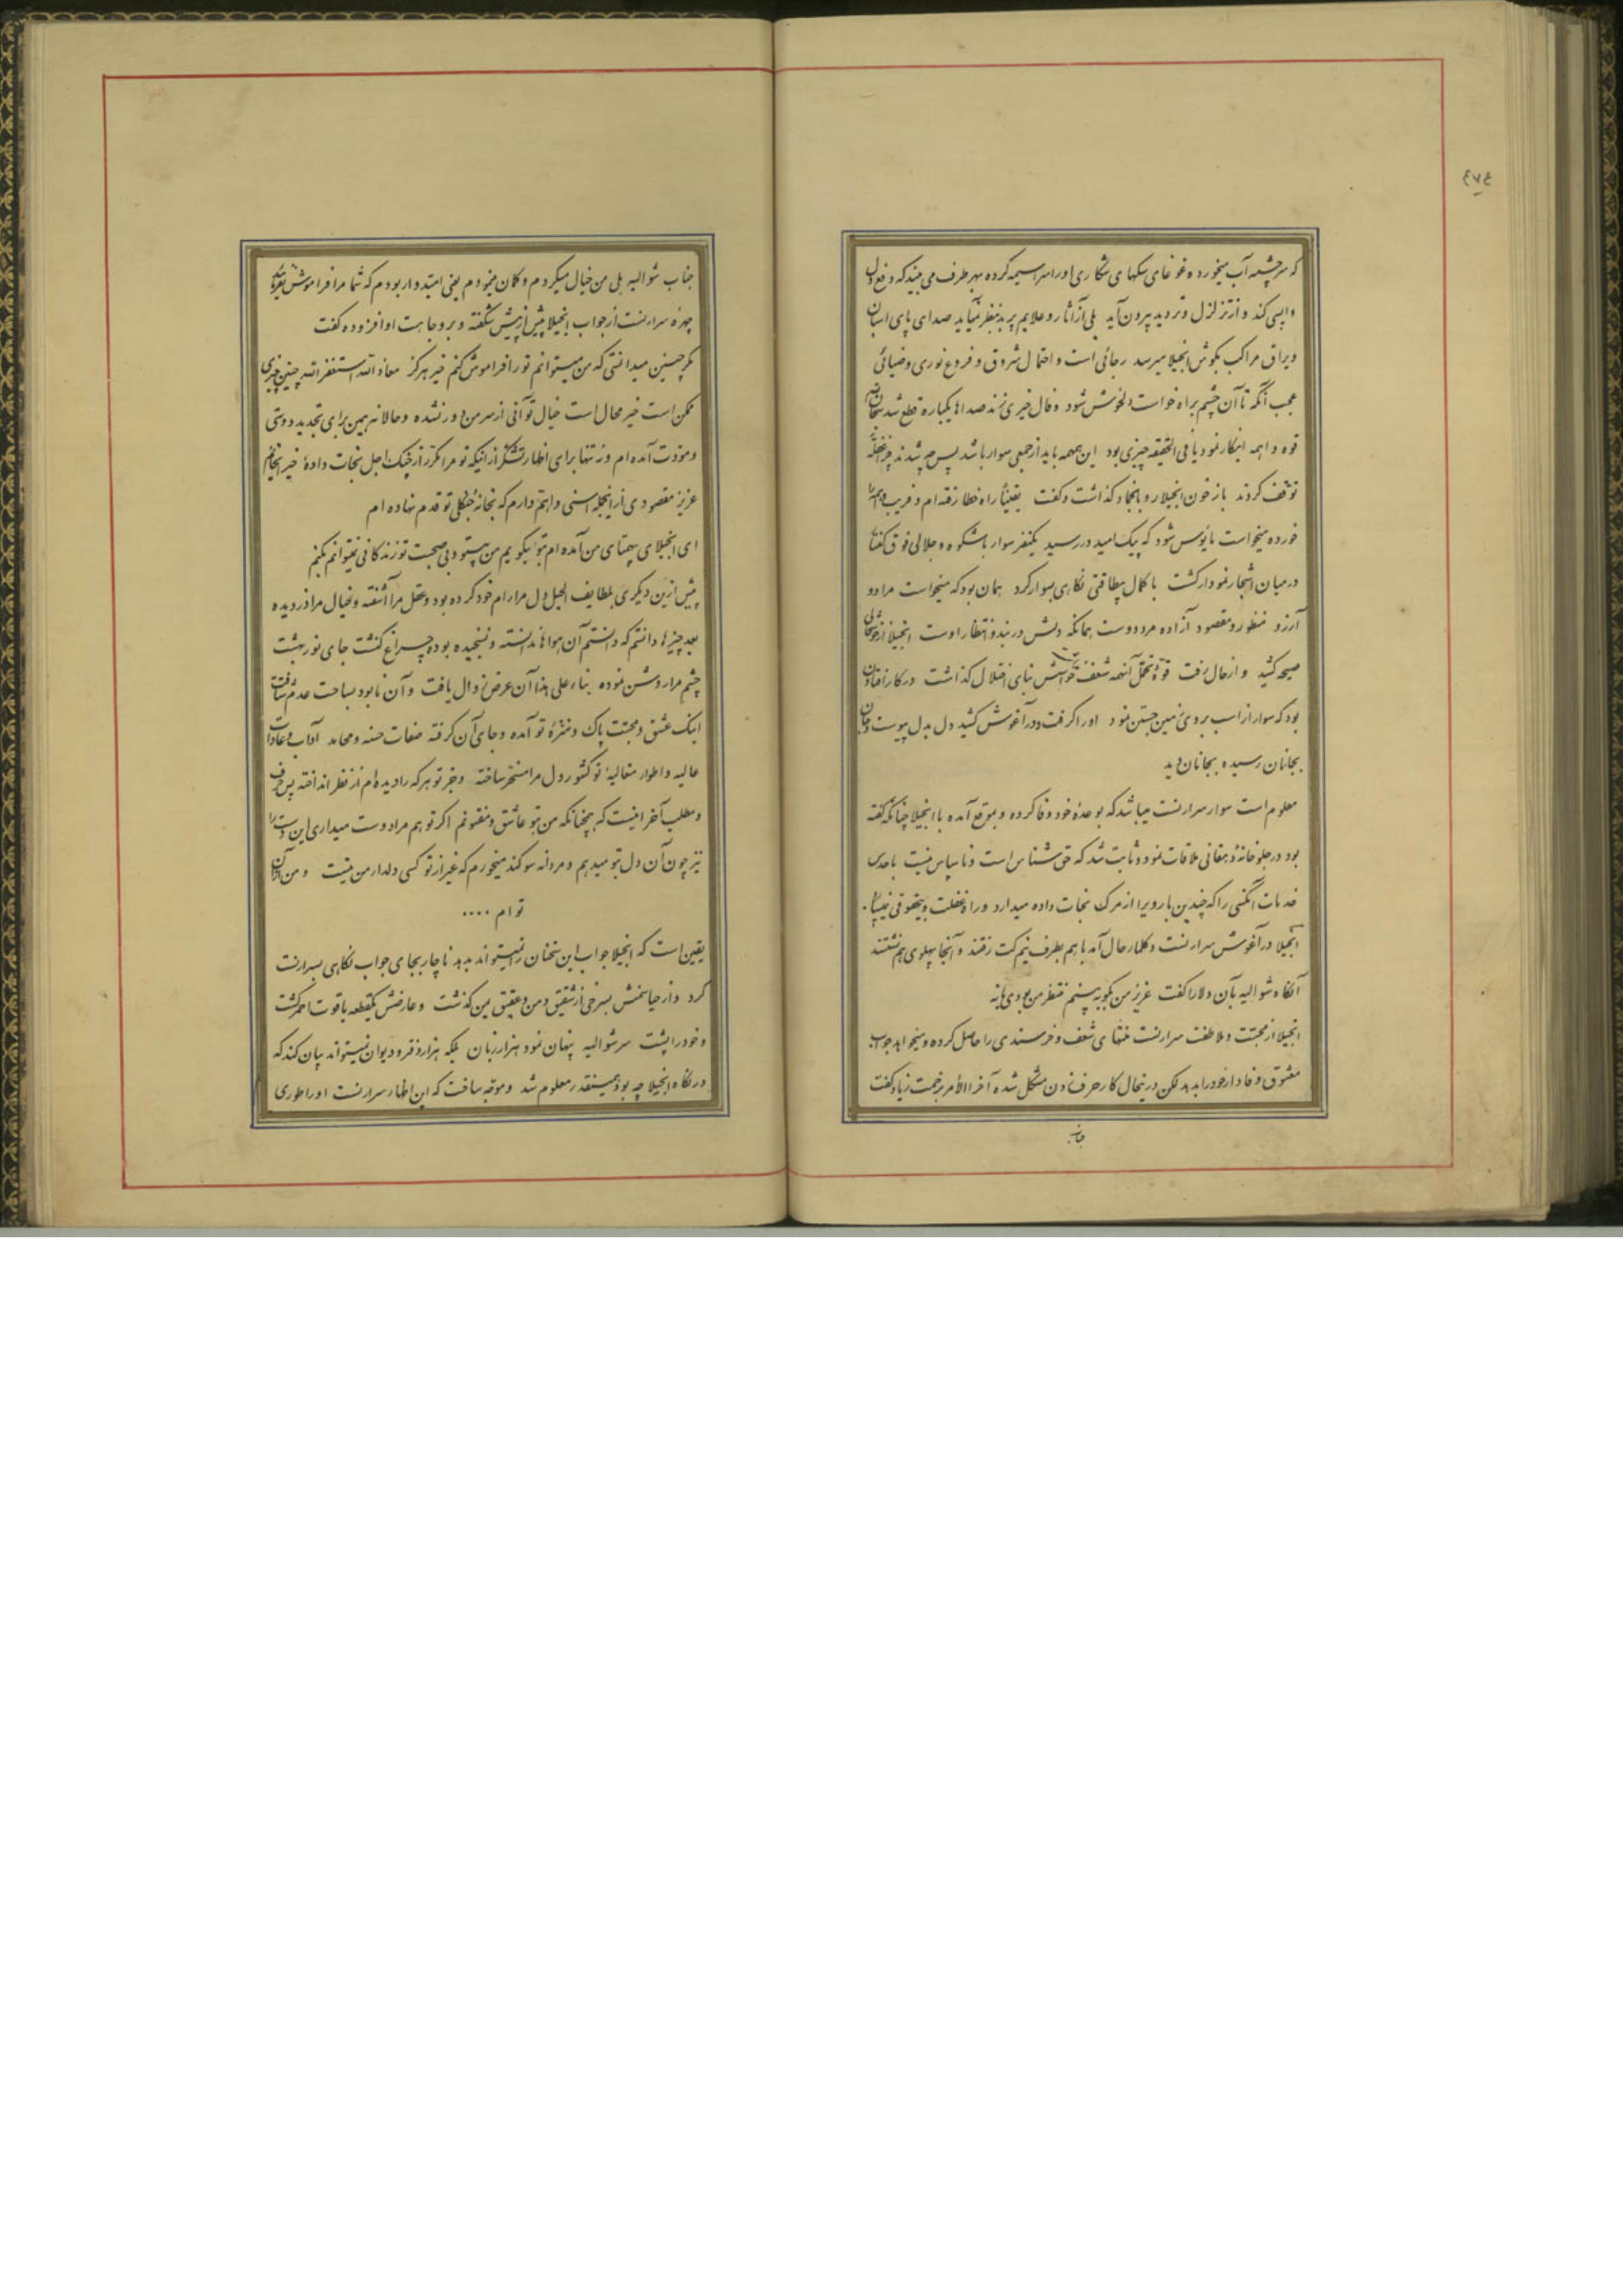 ٤٧٤
که سرچشمه آب میخورد و غوغای سگهای شکاری او را سراسیمه کرده بهر طرف می بیند که دفع
واپسی کند و از تزلزل و تردید بیرون آید بلی از آثار و علایم پدید بنظر نمیآید صدای پای اسبان
ویراق مراکب بگوش انجیلا میرسد رجائی است و احتمال شروق و فروغ نوری و ضیائی
عجب آنکه تا آن چشم براه خواست دلخوش شود و فال خیری زند صداها یکباره قطع شد
قوه واهمه ابتکار نمود یا فی الحقیقه چیزی بود این همهمه باید از جمعی سوار باشد پس چه شدند
توقف کردند باز خون انجیلا رو بانجماد گذاشت و گفت یقیناً راه خطا رفته ام و فریب
خورده میخواست مایوس شود که پیک امید در رسید یکنفر سوار باشکوه و جلالی فوق
در میان اشجار نمودار گشت با کمال بیطاقتی نگاهی بسوار کرد همان بود که میخواست مراد و
آرزو منظور و مقصود آزاده مرد دوست همانکه دلش در بند و انتظار اوست انجیلا از خوشحالی
صیحه کشید و از حال رفت قوهٔ تحمل آنهمه شعف نداشت حواسش بنای اختلال گذاشت در کار افتادن
بود که سوار از اسب بروی زمین جستن نمود او را گرفت و در آغوش کشید دل بدل پیوست و جان
بجانان رسیده بجانان دید
معلوم است سوار سرارنست میباشد که بوعده خود وفا کرده و بموقع آمده با انجیلا چنانکه گفته
بود در جلوخانهٔ دهقانی ملاقات نمود و ثابت شد که حق شناس است و ناسپاس نیست
خدمات آنکسی را که چندین بار ویرا از مرگ نجات داده میدارد و راه غفلت و بیحقوقی
انجیلا در آغوش سرارنست و کلمار حال آمد باهم بطرف نیم کت رفتند و آنجا پهلوی هم نشستند
آنگاه شوالیه بآن دلارا گفت عزیز من بگو ببینم منتظر من بودی یا نه
انجیلا از محبت و ملاطفت سرارنست منتهای شعف و خرسندی را حاصل کرده و میخواهد جواب
معشوق وفادار خود را بدهد لکن در اینحال کار حرف زدن مشکل شده آخرالأمر بزحمت زیاد گفت
جناب
جناب شوالیه بلی من خیال میکردم و گمان مینمودم یعنی امیدوار بودم که شما مرا فراموش نفرمائید
چهره سرارنست از جواب انجیلا بیش از پیش شگفته و بر وجاهت او افزوده گفت
مگر چنین میدانستی که من میتوانم تو را فراموش کنم خیر هرگز معاذ الله استغفر الله چنین چیزی
ممکن است خیر محال است خیال تو آنی از سر من دور نشده و حالا نه همین برای تجدید دوستی
و مودت آمده ام و نه تنها برای اظهار تشکر از اینکه تو مرا مکرر از چنگ اجل نجات دادهٔ خیر
عزیز مقصودی از اینجمله اسنی و اهم دارم که بخانه جنگلی تو قدم نهاده ام
ای انجیلای بیهمتای من آمده ام بتو بگویم من بیتو و بی صحبت تو زندگانی نمیتوانم بکنم
پیش ازین دیگری بلطایف الحیل دل مرا رام خود کرده بود و عقل مرا آشفته و خیال مرا دزدیده
بعد چیزها دانستم که دانستم آن هواها ندانسته و نسنجیده بوده چراغ کنشت جای نور بهشت
چشم مرا روشن نموده بناء علی هذا آن عرض زوال یافت و آن نابود بساحت عدم شتافت
اینک عشق و محبت پاک و منزهٔ تو آمده و جای آن گرفته صفات حسنه و محامد آداب و عادات
عالیه و اطوار متعالیهٔ تو کشور دل مرا مسخر ساخته و بجز تو هر که را دیده ام از نظر انداخته پس حرف
و مطلب آخر اینست که همچنانکه من بتو عاشق و مفتونم اگر تو هم مرا دوست میداری این دست را
نیز چون آن دل بتو میدهم و مردانه سوگند میخورم که غیر از تو کسی دلدار من نیست و من از آن
توام ....
یقین است که انجیلا جواب این سخنان را نمیتواند بدهد ناچار بجای جواب نگاهی بسرارنست
کرد و از حیا سخنش بسرخی از شقیق دمن و عقیق یمن گذشت و عارضش یکقطعه یاقوت احمر گشت
و خود را پشت سر شوالیه پنهان نمود هزار زبان بلکه هزار دفتر و دیوان نمیتواند بیان کند که
در نگاه انجیلا چه بود همینقدر معلوم شد و موجه ساخت که این اظهار سرارنست او را طوری